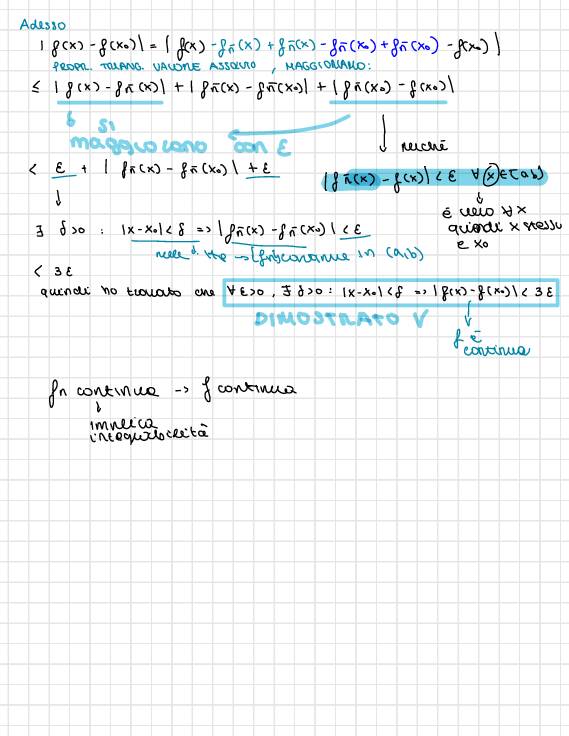 Adesso
| f(x) - f(x₀)| = | f(x) - fn̄(x) + fn̄(x) - fn̄(x₀) + fn̄(x₀) - f(x₀) |
PROPR. TRIANG. VALORE ASSOLUTO, MAGGIORIAMO:
≤ | f(x) - fn̄(x)| + | fn̄(x) - fn̄(x₀)| + | fn̄(x₀) - f(x₀)|
↓ si
maggiorano con ε
↓ poiché
< ε + | fn̄(x) - fn̄(x₀)| + ε
|fn̄(x) - f(x)| < ε ∀ x ∈ [a,b]
↓
è vero ∀x
quindi x stesso
e x₀
∃ δ>0 : |x-x₀| < δ => |fn̄(x) - fn̄(x₀)| < ε
nelle Hp → (fn) continue in (a,b)
< 3ε
quindi ho trovato che ∀ε>0, ∃ δ>0 : |x-x₀| < δ => |f(x) - f(x₀)| < 3ε
DIMOSTRATO V
↓
f è
continua
fn continua -> f continua
↓
implica
integrabilità